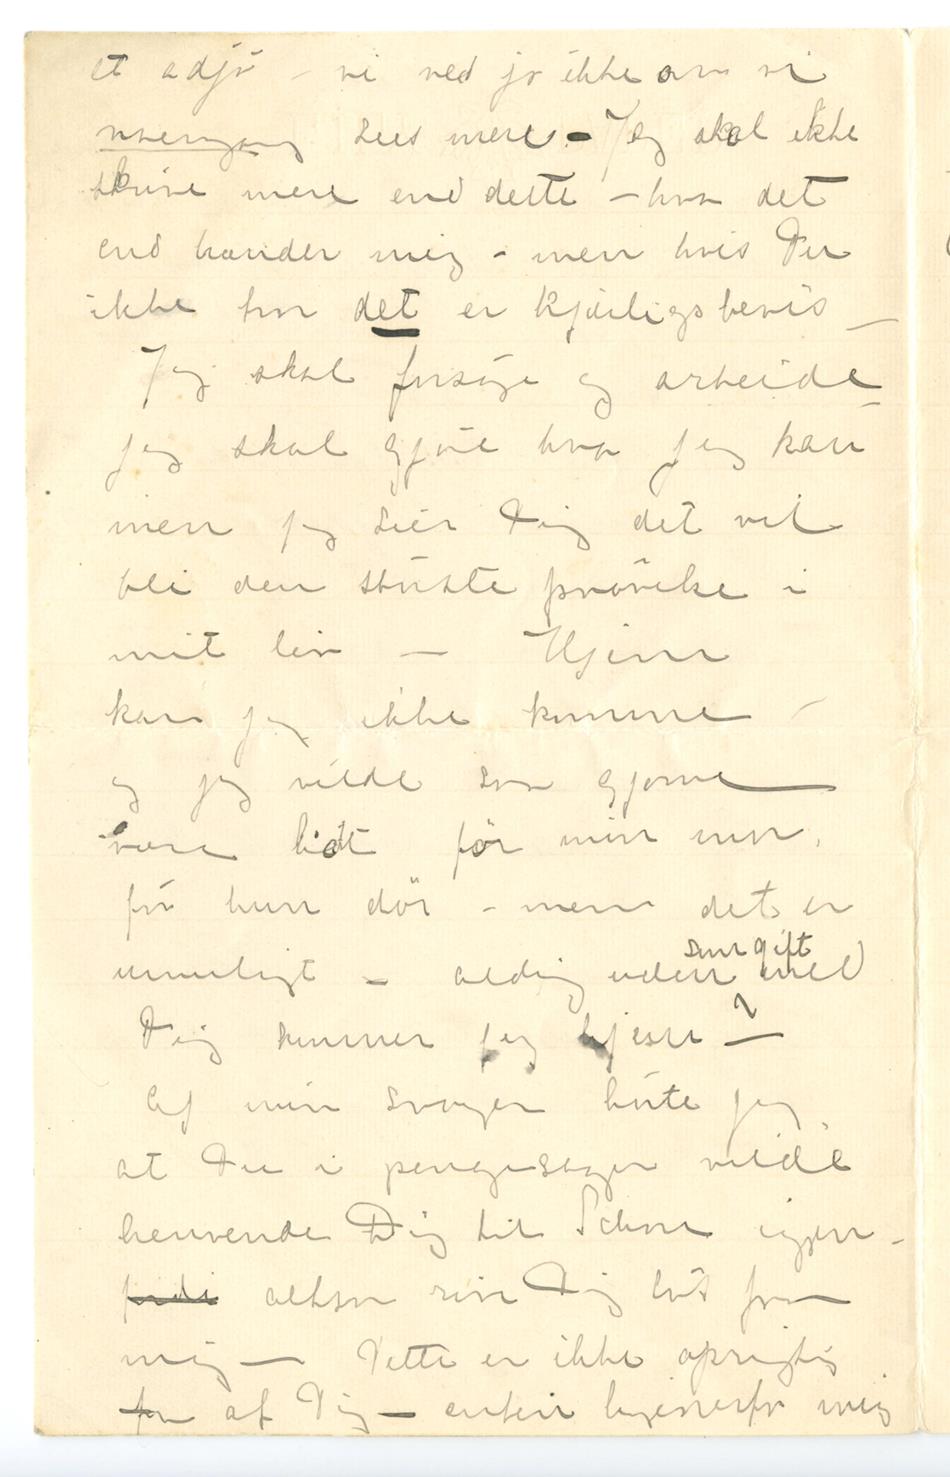 et adjö – vi ved jo ikke om vi
nogengang sees mere – Jeg skal ikke
skrive mere end dette – hva det
end hænder mig – men hvis Du
ikke tror det er kjærligsbevis –
Jeg skal forsöge og arbeide –
jeg skal gjöre hva jeg kan
men jeg sier Dig det vil
bli den störste prövelse i
mit liv – Hjem
kan jeg ikke komme –
og jeg vilde saa gjerne
være lidt för min mor
för hun dör – men det er
umuligt – aldrig uden som gift med
Dig kommer jeg hjem –
Af min svoger hörte jeg
at Du i pengesager vilde
henvende Dig til Schou igjen –
fordi altsaa rive Dig lös fra
mig – Dette er ikke oprigtig
fra af Dig – enten mig